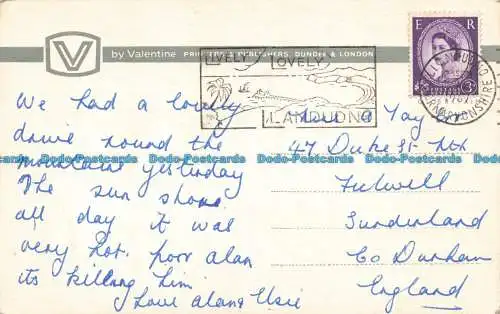 by Valentine PRINTERS & PUBLISHERS, DUNDEE & LONDON
E R
LIVELY LOVELY
LLANDUDNO
LLANDUDNO
CAERNARVONSHIRE
We had a lovely
drive round the
mountains yesterday
The sun shone
all day it was
very hot. poor alan
its killing him
Love alan & Elsie
47 Duke St Nth
Fulwell
Sunderland
Co Durham
England
Dodo-Postcards Dodo-Postcards Dodo-Postcards Dodo-Postcards Dodo-Postcards